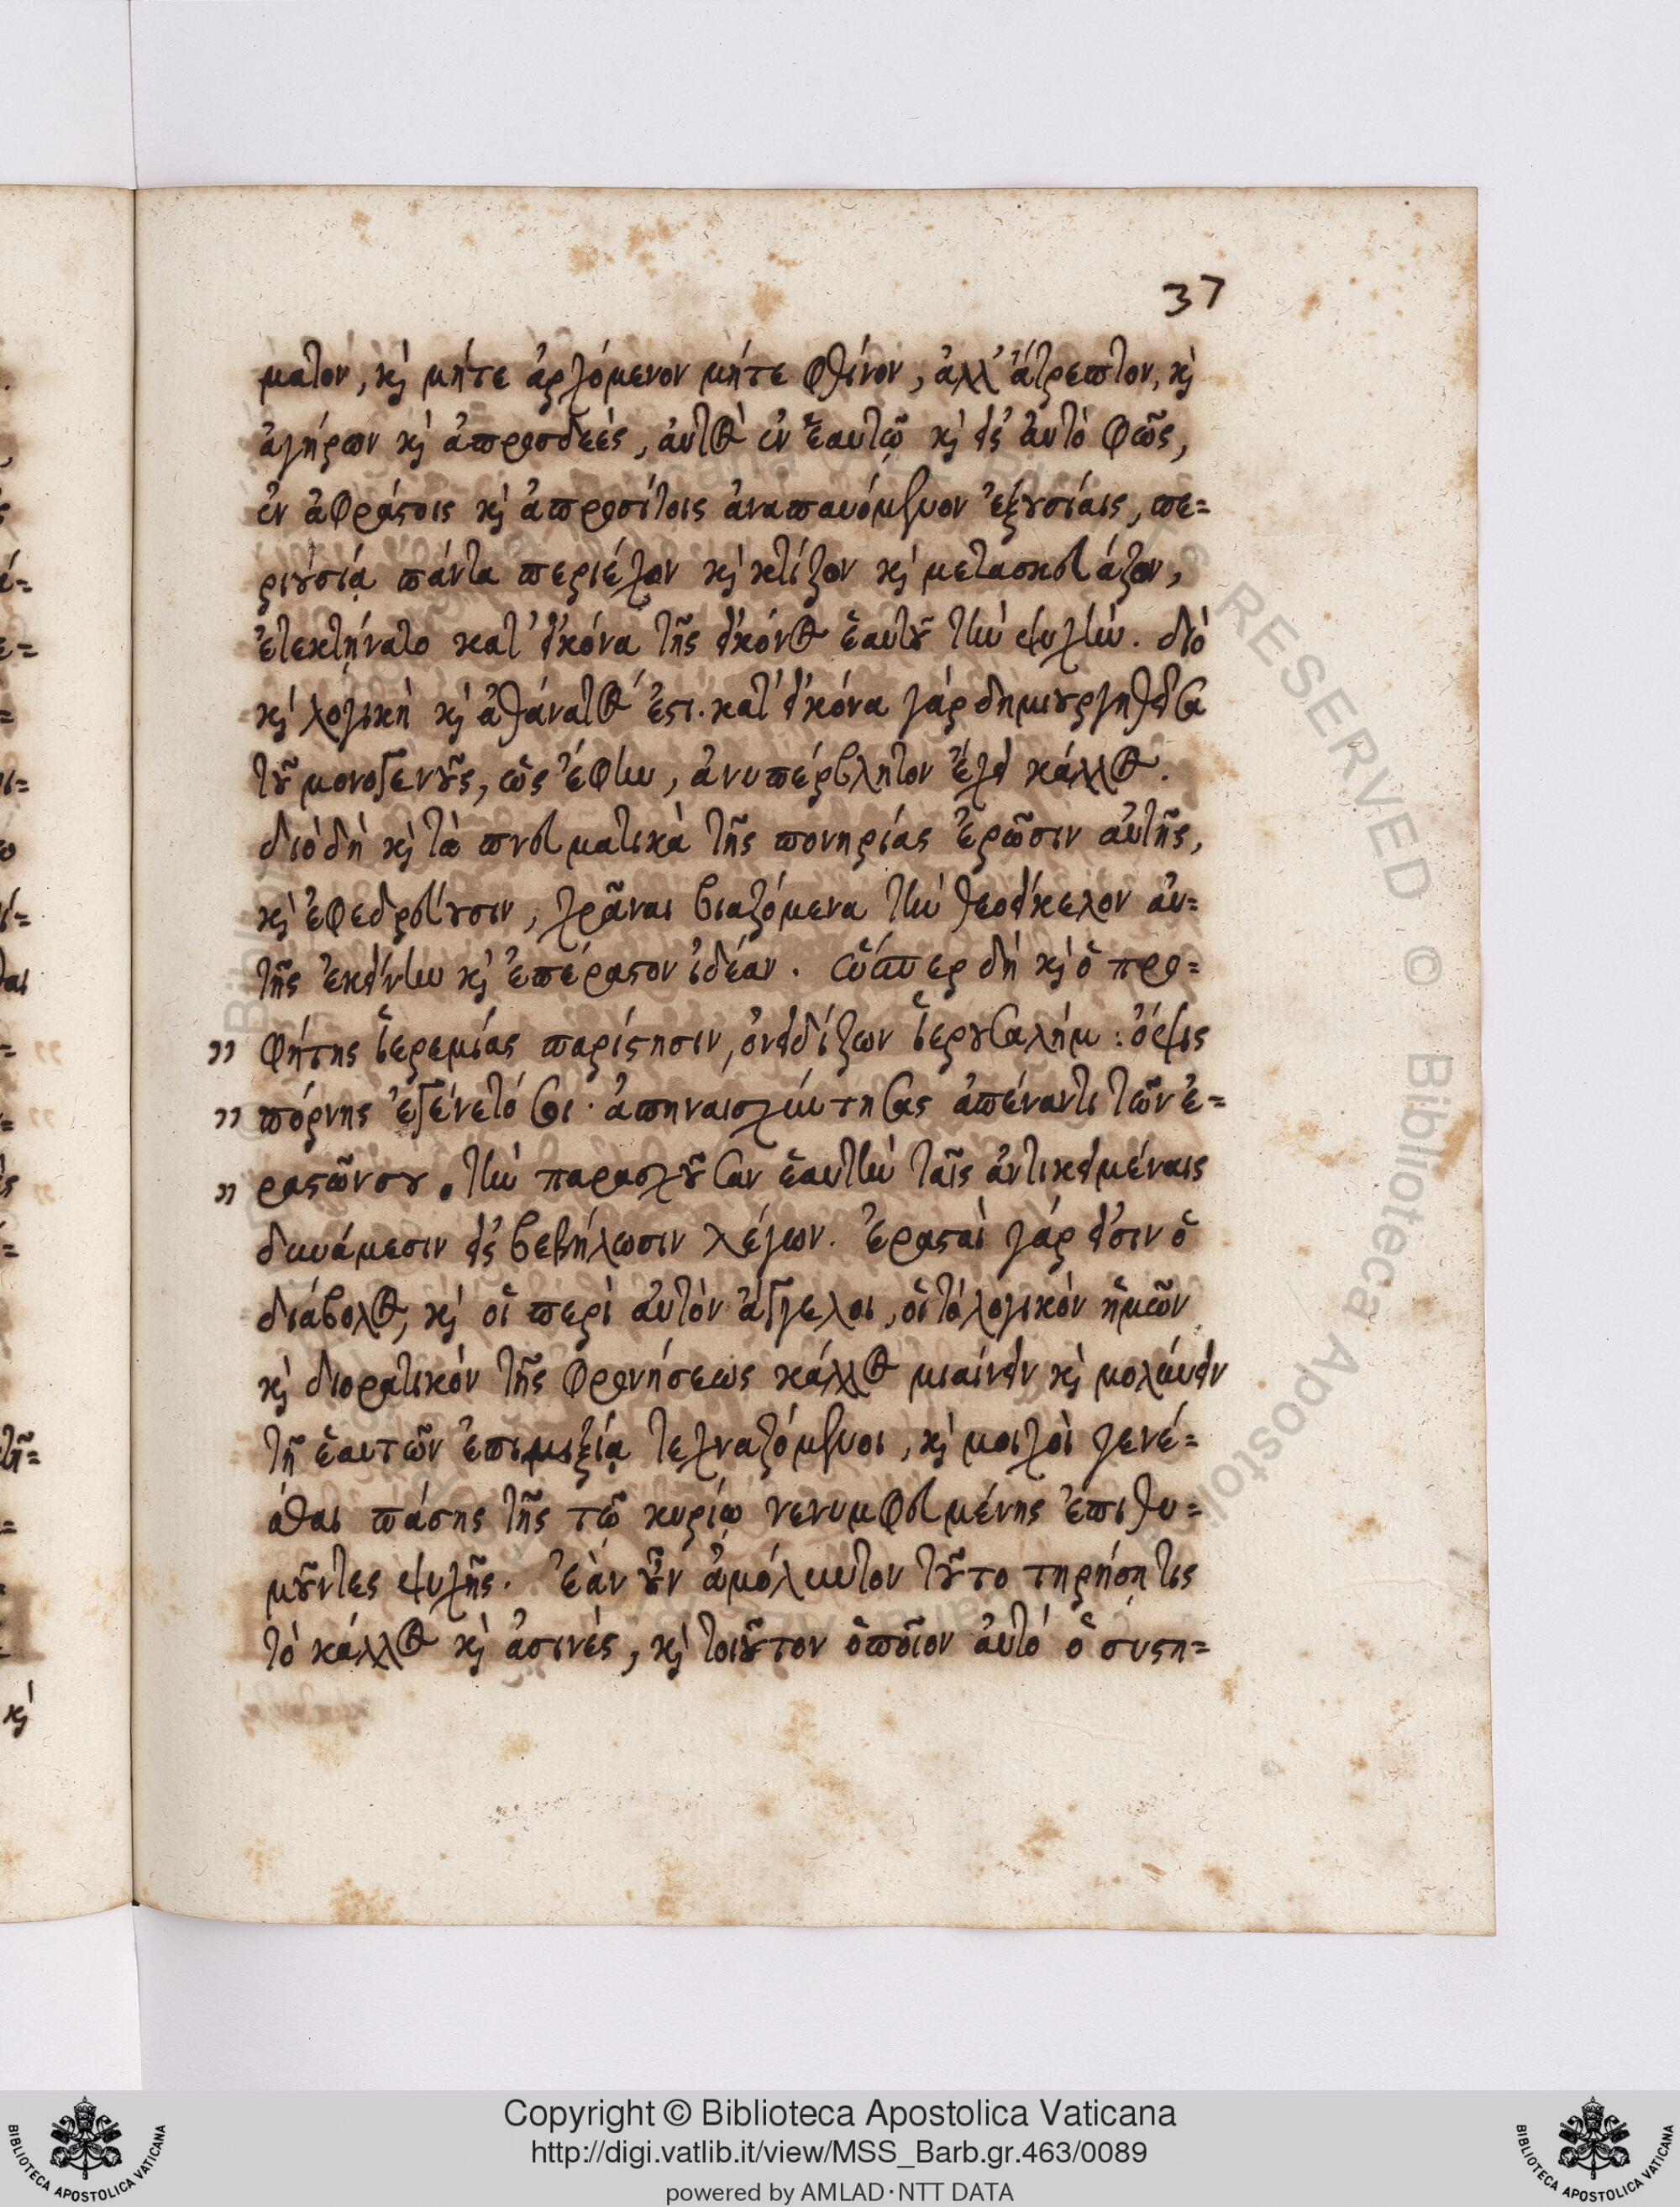 37
ματον, κ̀ μήτε ἀρχόμενον μήτε φθίνον, ἀλλ' ἄτρεπτον, κ̀
ἀγήρων κ̀ ἀπροσδεὲς, αὐτὸς ἐν ἑαυτῷ κ̀ εἰς αὐτὸ φῶς,
ἐν ἀφράστοις κ̀ ἀπροσίτοις ἀναπαυόμενον ἐξουσίαις, πε=
ριουσίᾳ πάντα περιέχον κ̀ κτίζον κ̀ μετασκευάζον,
ἐτεκτήνατο κατ' εἰκόνα τῆς εἰκόνος ἑαυτοῦ τὴν ψυχήν. διὸ
κ̀ λογικὴ κ̀ ἀθάνατός ἐστι. κατ' εἰκόνα γάρ δημιουργηθεῖσα
τοῦ μονογενοῦς, ὡς ἔφην, ἀνυπέρβλητον ἔχει κάλλος.
διὸ δὴ κ̀ τὰ πνευματικὰ τῆς πονηρίας ἐρῶσιν αὐτῆς,
κ̀ ἐφεδρεύουσιν, χρᾶναι βιαζόμενα τὴν θεοείκελον αὐ=
τῆς ἐκείνην κ̀ ἐπέραστον ἰδέαν. ὥσπερ δὴ κ̀ ὁ προ=
" φήτης ἱερεμίας παρίστησιν, ὀνειδίζων ἱερουσαλήμ: ὄψις
" πόρνης ἐγένετό σοι· ἀπηναισχύντησας ἀπέναντι τῶν ἐ=
" ραστῶν σου. τὴν παρασχοῦσαν ἑαυτὴν ταῖς ἀντικειμέναις
δυνάμεσιν εἰς βεβήλωσιν λέγων. ἐρασταὶ γάρ εἰσιν ὁ
διάβολος, κ̀ οἱ περὶ αὐτὸν ἄγγελοι, οἱ τὸ λογικόν ἡμῶν
κ̀ διορατικόν τῆς φρονήσεως κάλλος μιαίνειν κ̀ μολύνειν
τῇ ἑαυτῶν ἐπιμιξίᾳ τεχναζόμενοι, κ̀ μοιχοὶ γενέ=
σθαι πάσης τῆς τῷ κυρίῳ νενυμφευμένης ἐπιθυ=
μοῦντες ψυχῆς. ἐὰν οὖν ἀμόλυντον τοῦτο τηρήσῃ τις
τὸ κάλλος κ̀ ἀσινὲς, κ̀ τοιοῦτον ὁποῖον αὐτό ὁ συστη=
Copyright © Biblioteca Apostolica Vaticana
http://digi.vatlib.it/view/MSS_Barb.gr.463/0089
powered by AMLAD·NTT DATA
BIBLIOTECA APOSTOLICA VATICANA
BIBLIOTECA APOSTOLICA VATICANA